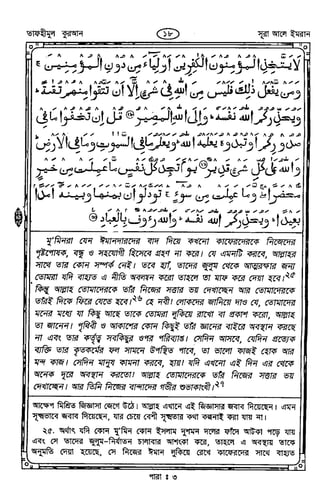 তাফহীমুল কুরআন
১৮
সূরা আলে ইমরান
لَا يَتَّخِذِ الْمُؤْمِنُونَ الْكٰفِرِيْنَ اَوْلِيَآءَ مِنْ دُوْنِ الْمُؤْمِنِيْنَ ۚ
وَمَنْ يَّفْعَلْ ذٰلِكَ فَلَيْسَ مِنَ اللّٰهِ فِيْ شَيْءٍ اِلَّآ اَنْ تَتَّقُوْا مِنْهُمْ تُقٰىةً ؕ
وَيُحَذِّرُكُمُ اللّٰهُ نَفْسَهٗ ؕ وَاِلَى اللّٰهِ الْمَصِيْرُ ۝ قُلْ اِنْ تُخْفُوْا مَا فِيْ
صُدُوْرِكُمْ اَوْ تُبْدُوْهُ يَعْلَمْهُ اللّٰهُ ؕ وَيَعْلَمُ مَا فِي السَّمٰوٰتِ وَمَا فِي الْاَرْضِ ؕ
وَاللّٰهُ عَلٰى كُلِّ شَيْءٍ قَدِيْرٌ ۝ يَوْمَ تَجِدُ كُلُّ نَفْسٍ مَّا عَمِلَتْ مِنْ خَيْرٍ
مُّحْضَرًا ۛ وَّمَا عَمِلَتْ مِنْ سُوْٓءٍ ۛ تَوَدُّ لَوْ اَنَّ بَيْنَهَا وَبَيْنَهٗٓ اَمَدًۢا
بَعِيْدًا ؕ وَيُحَذِّرُكُمُ اللّٰهُ نَفْسَهٗ ؕ وَاللّٰهُ رَءُوْفٌۢ بِالْعِبَادِ ۝
মু'মিনরা যেন ঈমানদারদের বাদ দিয়ে কখনো কাফেরদেরকে নিজেদের
পৃষ্ঠপোষক, বন্ধু ও সহযোগী হিসেবে গ্রহণ না করে। যে এমনটি করবে, আল্লাহর
সাথে তার কোন সম্পর্ক নেই। তবে হাঁ, তাদের জুলুম থেকে আত্মরক্ষার জন্য
তোমরা যদি বাহ্যত এ নীতি অবলম্বন করো তাহলে তা মাফ করে দেয়া হবে।২৫
কিন্তু আল্লাহ তোমাদেরকে তাঁর নিজের সত্তার ভয় দেখাচ্ছেন আর তোমাদেরকে
তাঁরই দিকে ফিরে যেতে হবে।২৬ হে নবী! লোকদের জানিয়ে দাও যে, তোমাদের
মনের মধ্যে যা কিছু আছে তাকে তোমরা লুকিয়ে রাখো বা প্রকাশ করো, আল্লাহ
তা জানেন। পৃথিবী ও আকাশের কোন কিছুই তাঁর জ্ঞানের বাইরে অবস্থান করছে
না এবং তাঁর কর্তৃত্ব সবকিছুর ওপর পরিব্যাপ্ত। সেদিন আসবে, যেদিন প্রত্যেক
ব্যক্তি তার কৃতকর্মের ফল সামনে উপস্থিত পাবে, তা ভালো কাজই হোক আর
মন্দ কাজ। সেদিন মানুষ কামনা করবে, হায়! যদি এখনো এই দিন এর থেকে
অনেক দূরে অবস্থান করতো! আল্লাহ তোমাদেরকে তাঁর নিজের সত্তার ভয়
দেখাচ্ছেন। আর তিনি নিজের বান্দাদের গভীর শুভাকাংখী।২৭
আক্ষেপ মিশ্রিত জিজ্ঞাসা জেগে উঠে। আল্লাহ এখানে এই জিজ্ঞাসার জবাব দিয়েছেন। এমন
সূক্ষ্মভাবে জবাব দিয়েছেন, যার চেয়ে বেশী সূক্ষ্মতার কথা কল্পনাই করা যায় না।
২৫. অর্থাৎ যদি কোন মু'মিন কোন ইসলাম দুশমন দলের ফাঁদে আটকা পড়ে যায়
এবং সে তাদের জুলুম-নির্যাতন চালাবার আশংকা করে, তাহলে এ অবস্থায় তাকে
অনুমতি দেয়া হয়েছে, সে নিজের ঈমান লুকিয়ে রেখে কাফেরদের সাথে বাহ্যত
পারা : ৩